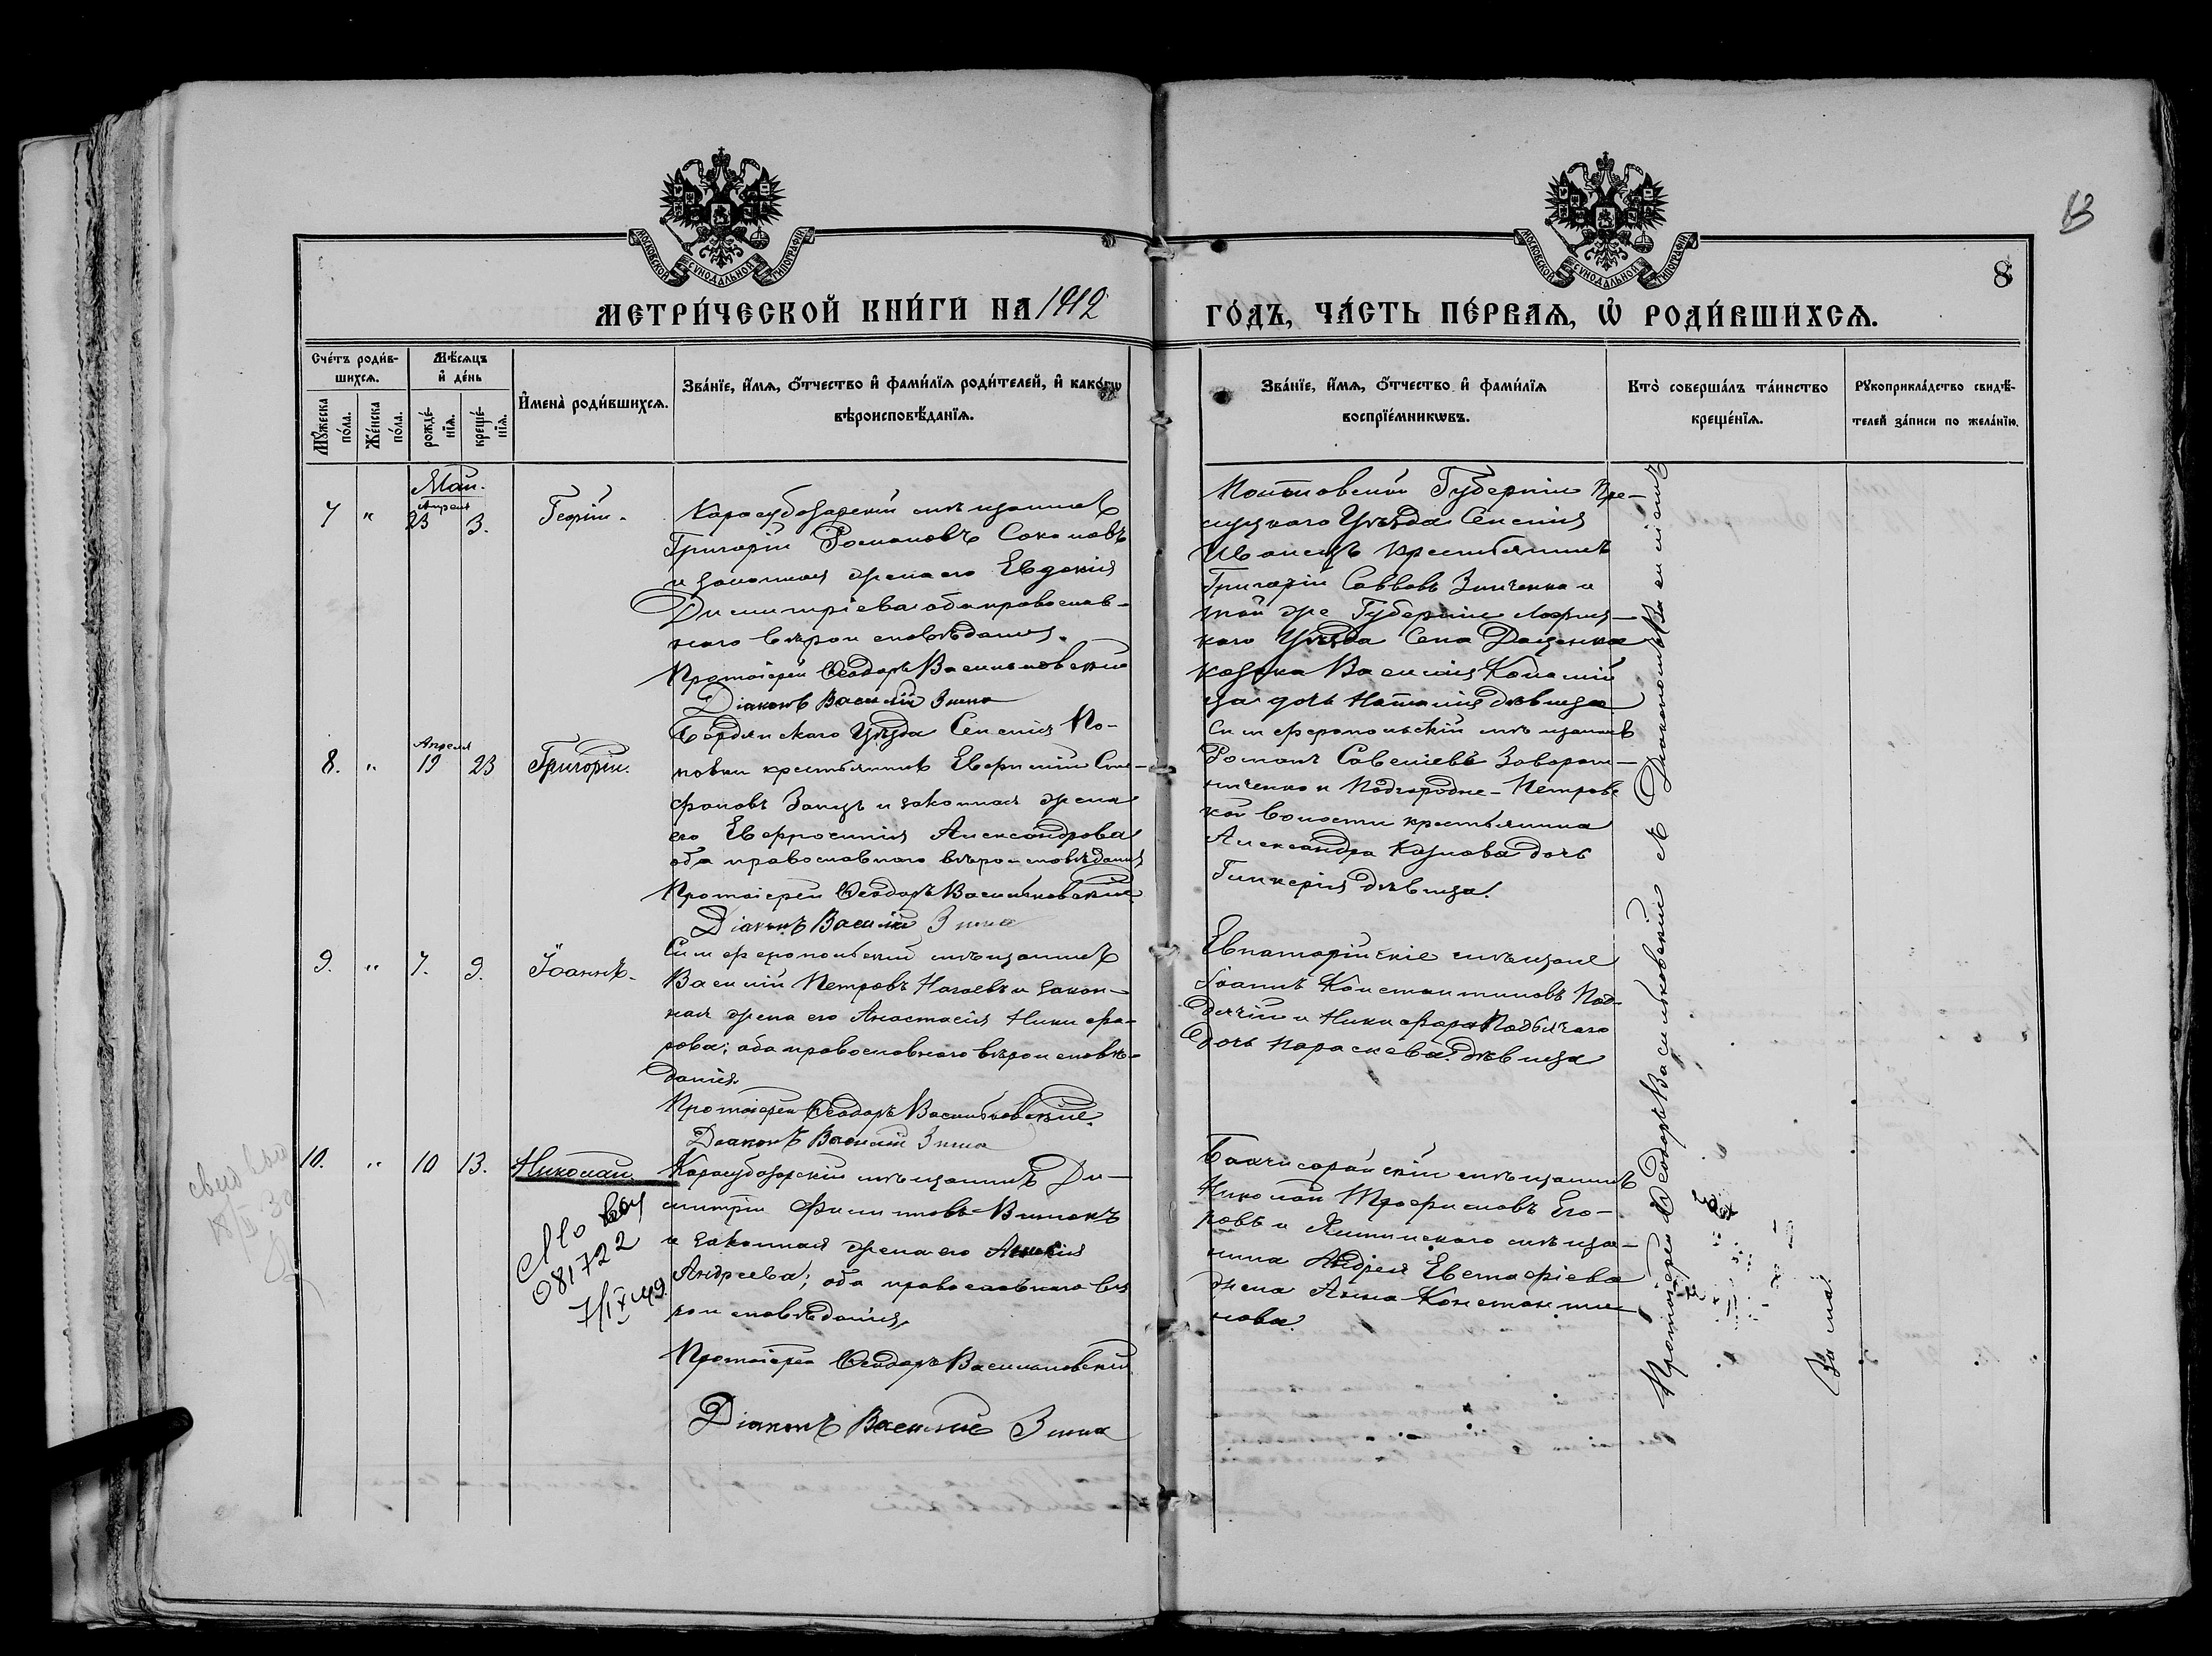 13
8
МОСКОВСКОЙ СУНОДАЛЬНОЙ ТИПОГРАФІИ
МОСКОВСКОЙ СУНОДАЛЬНОЙ ТИПОГРАФІИ
МЕТРИ́ЧЕСКОЙ КНИ́ГИ НА 1912
ГО́ДЪ, ЧА́СТЬ ПЕ́РВАѦ, Ѡ҆ РОДИ́ВШИХСѦ.
Сче́тъ роди́в-
шихсѧ.
Мѣ́сѧцъ
и҆ де́нь
Мꙋ́жеска
по́ла.
Же́нска
по́ла.
рожде́-
нїѧ.
креще́-
нїѧ.
И҆мена̀ роди́вшихсѧ.
Зва́нїе, и҆́мѧ, ѻ҆́тчество и҆ фами́лїѧ роди́телей, и҆ како́гѡ
вѣроисповѣ́данїѧ.
Зва́нїе, и҆́мѧ, ѻ҆́тчество и҆ фами́лїѧ
воспрїе́мникѡвъ.
Кто̀ соверша́лъ та́инство
креще́нїѧ.
Рꙋкоприкла́дство свидѣ́-
телей за́писи по жела́нїю.
Май.
Апреля
7 " 23 3. Георгій.
Карасубазарскій мѣщанинъ
Григорій Романовъ Соколовъ
и законная жена его Евдокія
Димитріева оба православ-
наго вѣроисповѣданія.
Протоіерей Ѳеодоръ Васильковскій
Діаконъ Василій Зинка
Полтавской Губерніи
уѣзда Селенія
Иванецъ крестьянинъ
Григорій Саввовъ Зинченко и
той же Губерніи
каго Уѣзда Села Даценко
козака Василія
дочь Наталія дѣвица
Апреля
8. " 19 23 Григорій.
Бердянскаго Уѣзда Селенія По-
повки крестьянинъ
Заецъ и законная жена
его Евфросинія Александрова
оба православнаго вѣроисповѣданія
Протоіерей Ѳеодоръ Васильковскій
Діаконъ Василій Зинка
Симферопольскій мѣщанинъ
Романъ Савеліевъ
и Подгородне-Петровс
кой волости крестьянина
Александра дочь
Гликерія дѣвица.
9. " 7. 9. Іоаннъ.
Симферопольскій мѣщанинъ
Василій Петровъ Нагаевъ и закон-
ная жена его Анастасія Никифо-
рова; оба православнаго вѣроисповѣ-
данія.
Протоіерей Ѳеодоръ Васильковскій.
Діаконъ Василій Зинка
Евпаторійскіе мѣщане
Іоаннъ Константиновъ Под-
и Никифора
дочь Параскева дѣвица
10. " 10 13. Николай.
Карасубазарскій мѣщанинъ Ди-
митрій Филипповъ
и законная жена его
Андреева; оба православнаго вѣ
роисповѣданія.
Протоіерей Ѳеодоръ Васильковскій
Діаконъ Василій Зинка
Бахчисарайскій мѣщанинъ
Николай Трофимовъ Его-
ровъ и Ялтинскаго мѣща-
нина Андрея Евстафіева
жена Анна Константи-
нова.
081722
7/IX 49
Протоіерей Ѳеодоръ Васильковскій и Діакономъ Василіемъ
Зинка